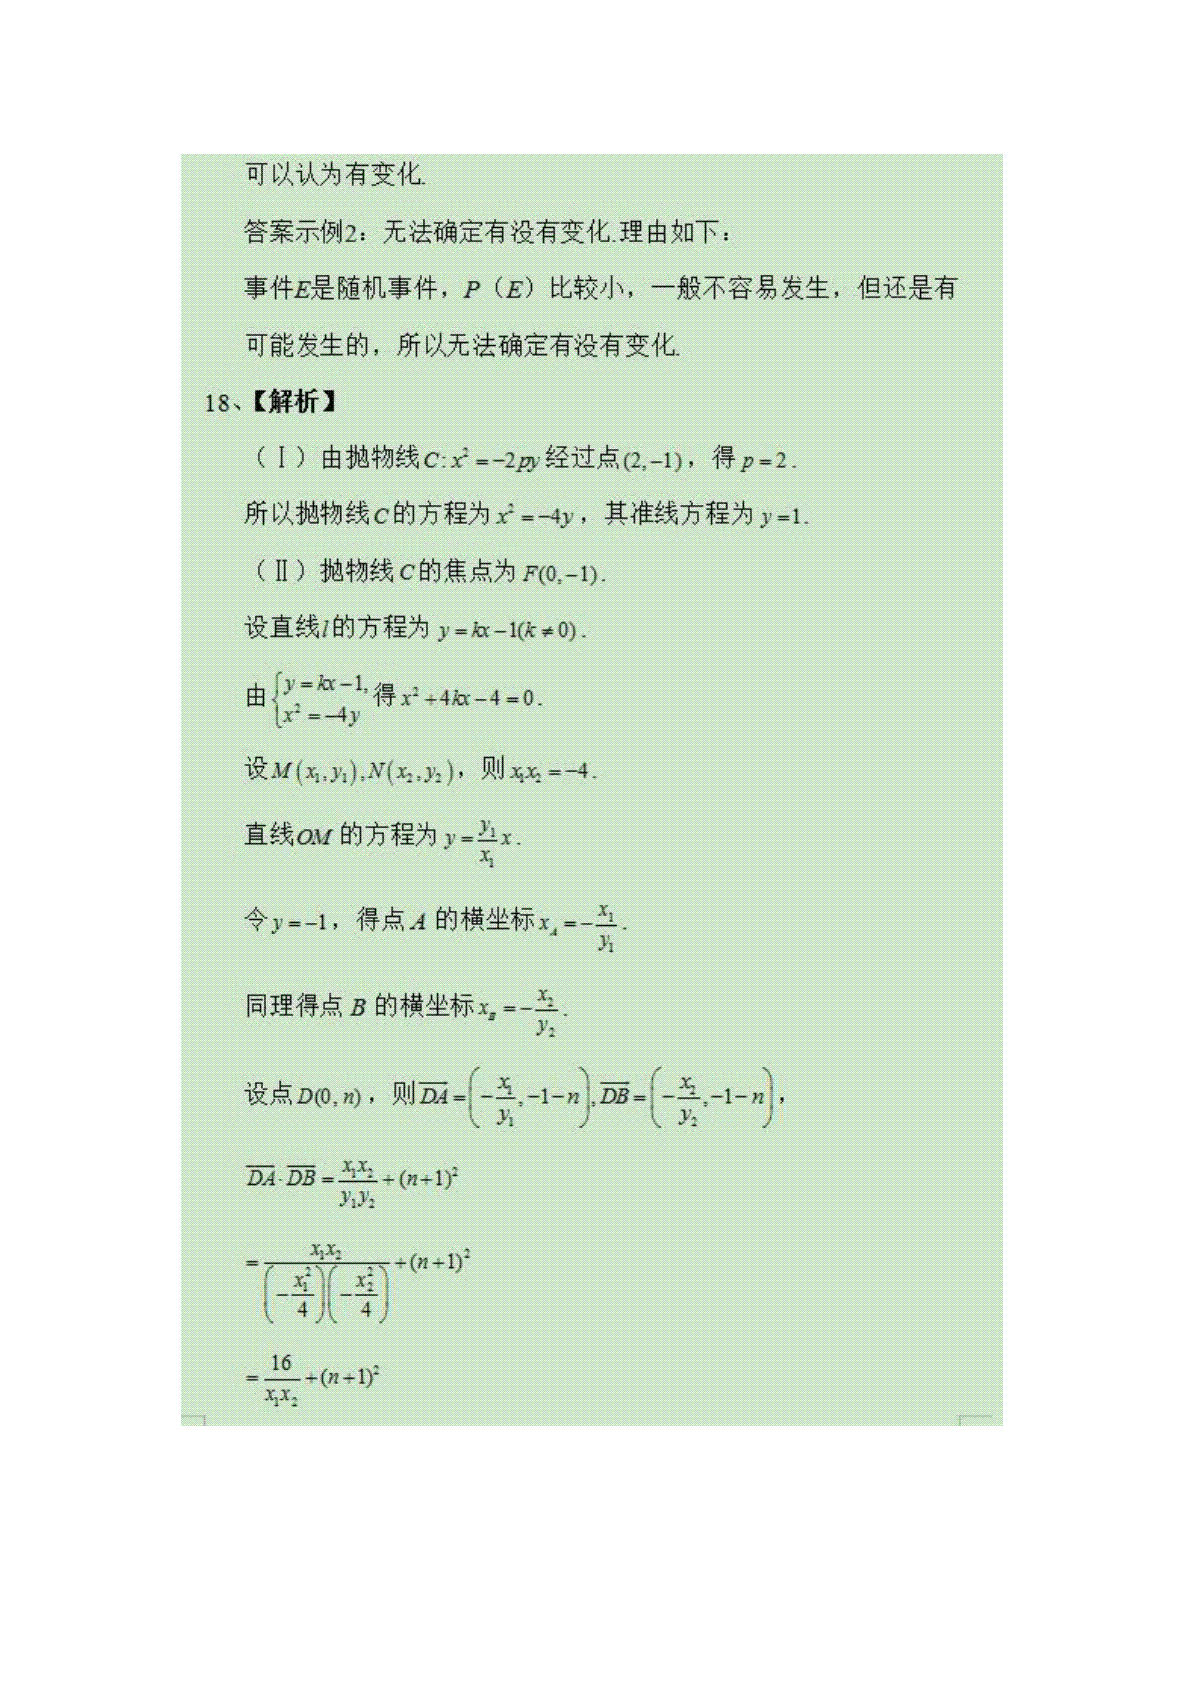 可以认为有变化.
答案示例2：无法确定有没有变化.理由如下：
事件E是随机事件，P（E）比较小，一般不容易发生，但还是有
可能发生的，所以无法确定有没有变化.
18、【解析】
（Ⅰ）由抛物线 C: x² = −2py 经过点 (2, −1)，得 p = 2.
所以抛物线 C 的方程为 x² = −4y，其准线方程为 y = 1.
（Ⅱ）抛物线 C 的焦点为 F(0, −1).
设直线 l 的方程为 y = kx − 1(k ≠ 0).
由 { y = kx − 1, x² = −4y 得 x² + 4kx − 4 = 0.
设 M(x₁, y₁), N(x₂, y₂)，则 x₁x₂ = −4.
直线 OM 的方程为 y = \frac{y₁}{x₁} x.
令 y = −1，得点 A 的横坐标 x_A = −\frac{x₁}{y₁}.
同理得点 B 的横坐标 x_B = −\frac{x₂}{y₂}.
设点 D(0, n)，则 \overrightarrow{DA} = (−\frac{x₁}{y₁}, −1−n), \overrightarrow{DB} = (−\frac{x₂}{y₂}, −1−n)，
\overrightarrow{DA} · \overrightarrow{DB} = \frac{x₁x₂}{y₁y₂} + (n+1)²
= \frac{x₁x₂}{(−\frac{x₁²}{4})(−\frac{x₂²}{4})} + (n+1)²
= \frac{16}{x₁x₂} + (n+1)²